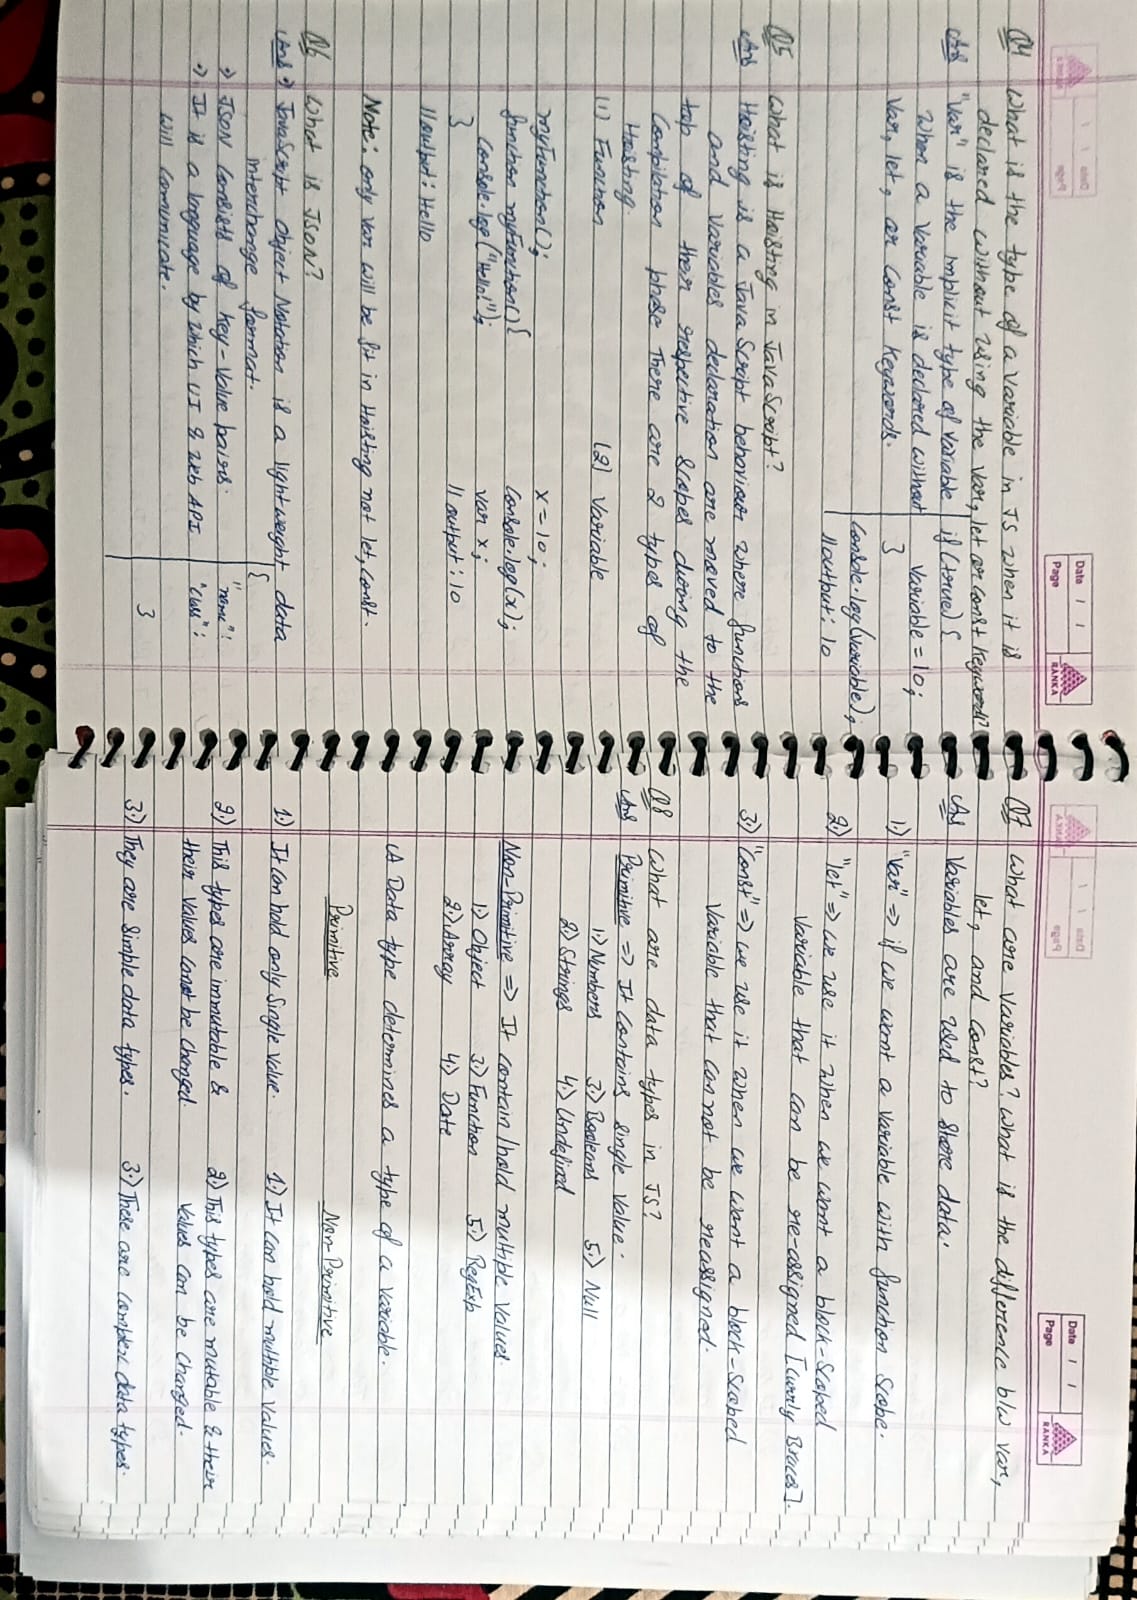 Date / /
Page
RANKA
Q4 What is the type of a variable in JS when it is
declared without using the var, let or const keyword?
Ans "var" is the implicit type of variable
when a variable is declared without
var, let, or const keywords.
if(true){
variable = 10;
}
console.log(variable);
//output: 10
Q5 What is Hoisting in JavaScript?
Ans Hoisting is a JavaScript behaviour where functions
and variables declaration are moved to the
top of their respective scopes during the
compilation phase There are 2 types of
Hoisting.
(1) Function
(2) Variable
myFunction();
function myFunction(){
console.log("Hello!");
}
//output: Hello
x = 10;
console.log(x);
var x;
//output: 10
Note: only var will be fit in Hoisting not let, const.
Q6 What is JSON?
Ans → JavaScript Object Notation is a lightweight data
interchange format.
→ JSON consists of key-value pairs.
→ It is a language by which UI & web API
will communicate.
{
"name":
"class":
}
Date / /
Page
RANKA
Q7 What are variables? What is the difference b/w var,
let, and const?
Ans Variables are used to store data.
1.) "var" => if we want a variable with function scope.
2.) "let" => we use it when we want a block-scoped
variable that can be re-assigned [Curly Braces].
3.) "const" => we use it when we want a block-scoped
variable that can not be reassigned.
Q8 What are data types in JS?
Ans Primitive => It contains single value.
1.) Numbers 3.) Booleans 5.) Null
2.) Strings 4.) Undefined
Non-Primitive => It contain/hold multiple values.
1.) Object 3.) Function 5.) RegExp
2.) Array 4.) Date
A Data type determines a type of a variable.
Primitive Non-Primitive
1.) It can hold only single value. 1.) It can hold multiple values.
2.) This types are immutable & 2.) This types are mutable & their
their values cannot be changed. values can be changed.
3.) They are simple data types. 3.) These are complex data types.